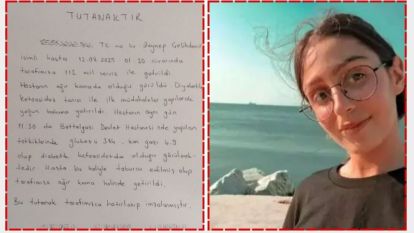 TUTANAKTIR
Tc no lu Zeynep
isimli hasta 12.08.2025 01.30 civarında
tarafımıza 112 acil servis ile getirildi
Hastanın ağır komada olduğu görüldü Diyabetik
ketoasidoz tanısı ile ilk müdahaleler yapılarak
yoğun bakıma getirildi. Hastanın aynı gün
11.30 da Battalgazi Devlet Hastanesi nde yapılan
tetkiklerinde glukoz 394 - kan gazı 6.9
olup diabetik ketoasidozda olduğu görülmek-
tedir. Hasta bu haliyle taburcu edilmiş olup
tarafımıza ağır koma halinde getirildi.
Bu tutanak tarafımızca hazırlanıp imzalanmıştır.